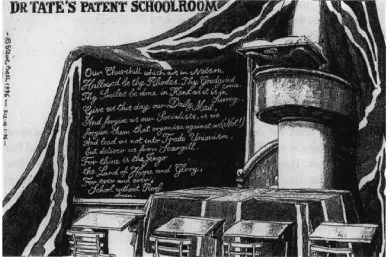 DR TATE'S PATENT SCHOOLROOM
© Steve Bell 1996
Our Churchill which art in Nelson
Hallowed be thy Rhodes. Thy Gradgrind come
Thy Smiles be done in Kent as it is in Surrey.
Give us this day our Daily Mail,
And forgive us our Socialists, as we
forgive them that organise against us (Not!)
And lead us not into Trade Unionism,
but deliver us from Scargill
For thine is the Jingo
the Land of Hope and Glory,
For ever and ever,
School without Roof
Amen.